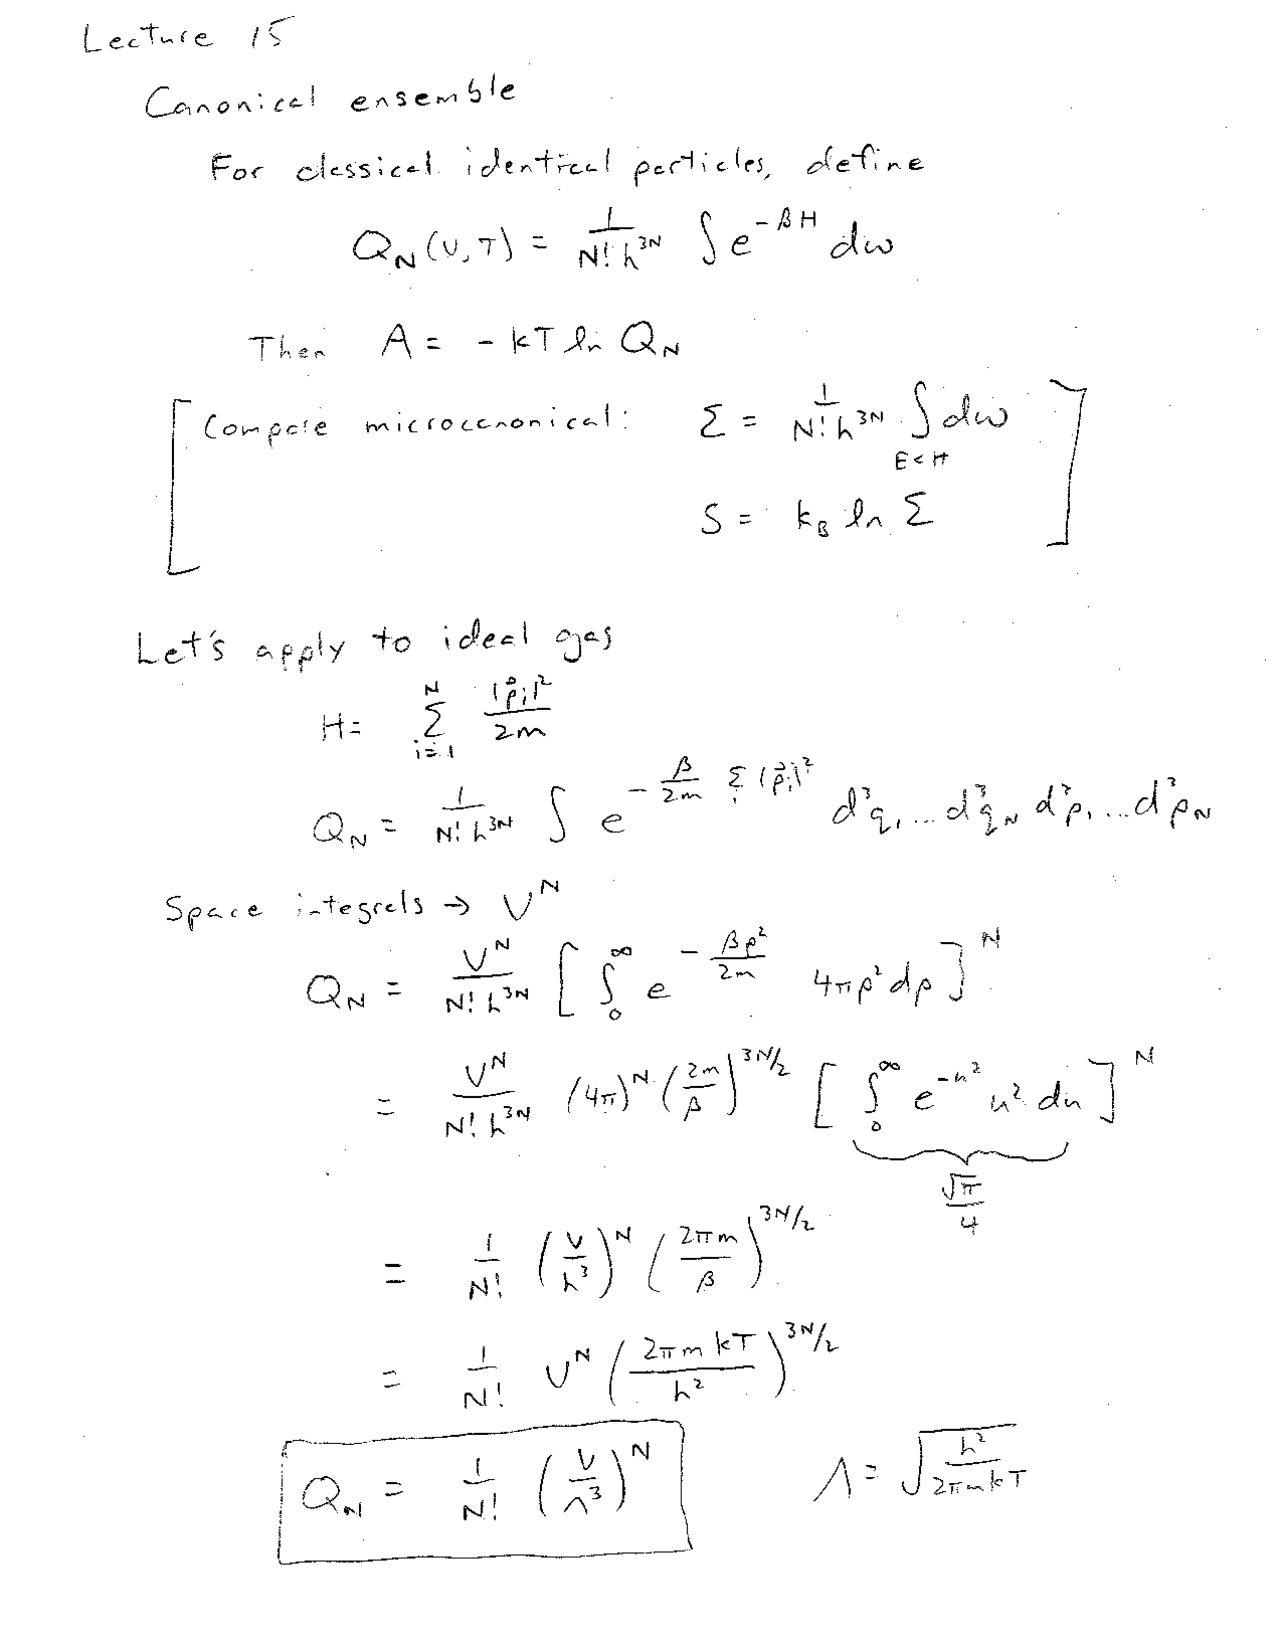 Lecture 15
Canonical ensemble
For classical identical particles, define
Q_N (V,T) = 1/(N! h^{3N}) ∫ e^{-βH} dω
Then A = - kT ln Q_N
[Compare microcanonical: Σ = 1/(N! h^{3N}) ∫_{E<H} dω
S = k_B ln Σ]
Let's apply to ideal gas
H = Σ_{i=1}^{N} |p⃗_i|²/2m
Q_N = 1/(N! h^{3N}) ∫ e^{-β/2m Σ_i |p⃗_i|²} d³q_1 ... d³q_N d³p_1 ... d³p_N
Space integrals → V^N
Q_N = V^N/(N! h^{3N}) [∫_0^∞ e^{-βp²/2m} 4πp² dp]^N
= V^N/(N! h^{3N}) (4π)^N (2m/β)^{3N/2} [∫_0^∞ e^{-u²} u² du]^N
√π/4
= 1/N! (V/h³)^N (2πm/β)^{3N/2}
= 1/N! V^N (2πm kT/h²)^{3N/2}
Q_N = 1/N! (V/Λ³)^N Λ = √(h²/2πmkT)